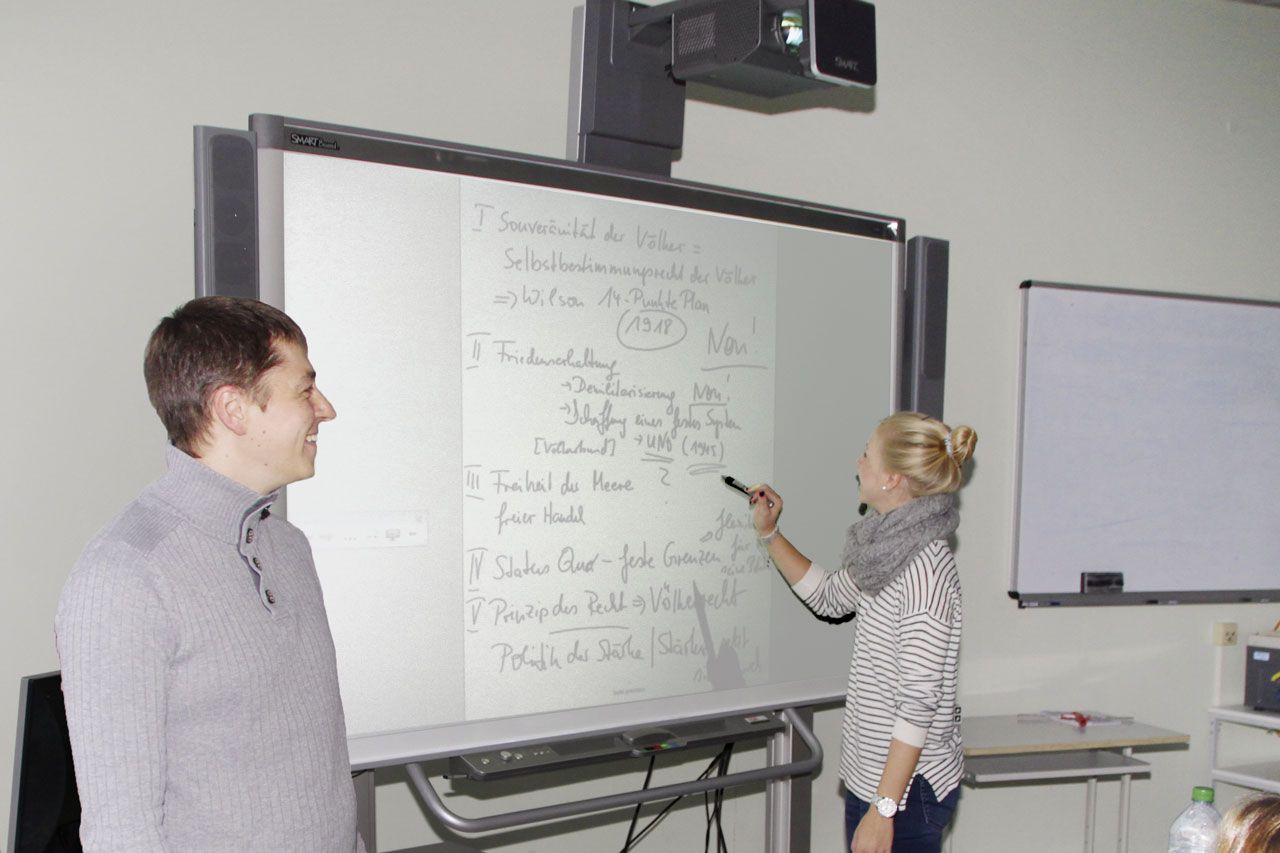 SMART
SMART Board
I Souveränität der Völker =
Selbstbestimmungsrecht der Völker
=> Wilson 14-Punkte Plan
1918
Non!
II Friedenserhaltung
→ Demilitarisierung Non!
→ Schaffung eines festen System
[Völkerbund] → UNO (1945)
?
III Freiheit der Meere
freier Handel
für
IV Status Quo - feste Grenzen
V Prinzip des Recht => Völkerrecht
Politik der Stärke /